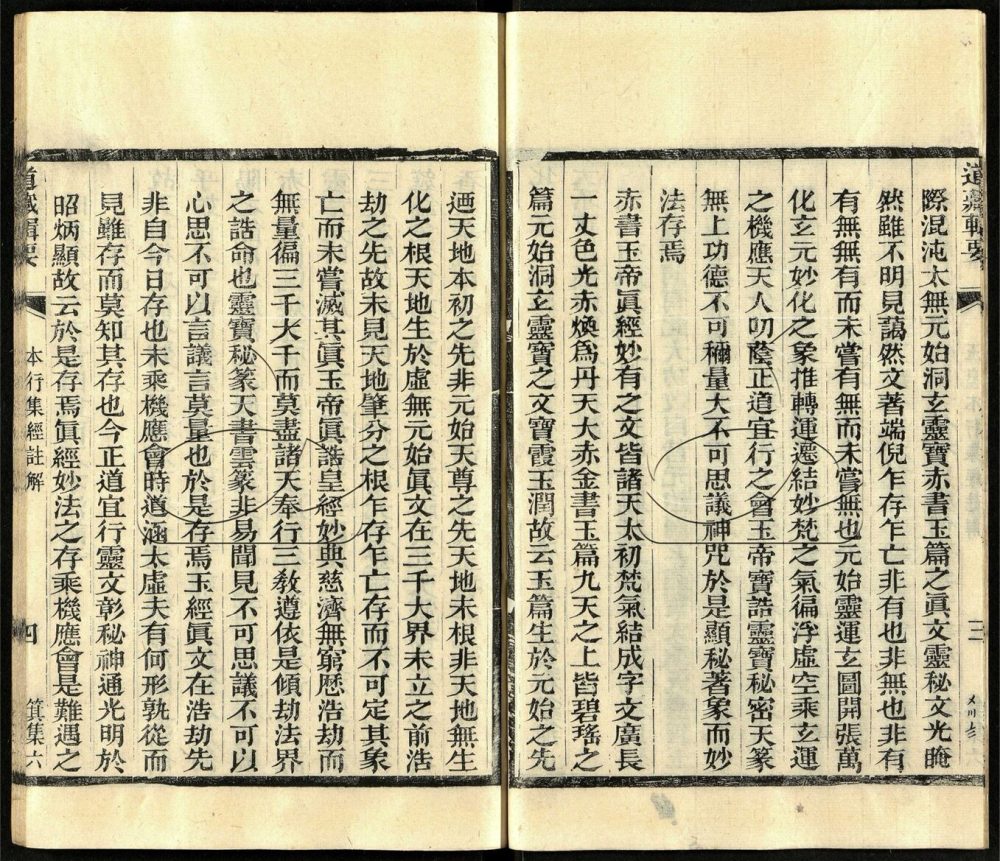 道藏輯要
三
際混沌太無元始洞玄靈寶赤書玉篇之眞文靈秘文光晻
然雖不明見藹然文著端倪乍存乍亡非有也非無也非有
有無無有而未嘗有無而未嘗無也元始靈運玄圖開張萬
化玄元妙化之象推轉運還結妙梵之氣徧浮虛空乘玄運
之機應天人叨蔭正道宜行之會玉帝寶誥靈寶秘密天篆
無上功德不可稱量大不可思議神咒於是顯秘著象而妙
法存焉
赤書玉帝眞經妙有之文皆諸天太初梵氣結成字文廣長
一丈色光赤煥爲丹天大赤金書玉篇九天之上皆碧瑤之
篇元始洞玄靈寶之文寶霞玉潤故云玉篇生於元始之先
迺天地本初之先非元始天尊之先天地未根非天地無生
化之根天地生於虛無元始眞文在三千大界未立之前浩
三劫之先故未見天地肇分之根乍存乍亡存而不可定其象
亡而未嘗滅其眞玉帝眞誥皇經妙典慈濟無窮歷浩劫而
無量徧三千大千而莫盡諸天奉行三教遵依是傾劫法界
之誥命也靈寶秘篆天書雲篆非易聞見不可思議不可以
心思不可以言議言莫量也於是存焉玉經眞文在浩劫先
非自今日存也未乘機應會時道涵太虛夫有何形孰從而
見雖存而莫知其存也今正道宜行靈文彰秘神通光明於
昭炳顯故云於是存焉眞經妙法之存乘機應會是難遇之
道藏輯要
本行集經註解
四
箕集六